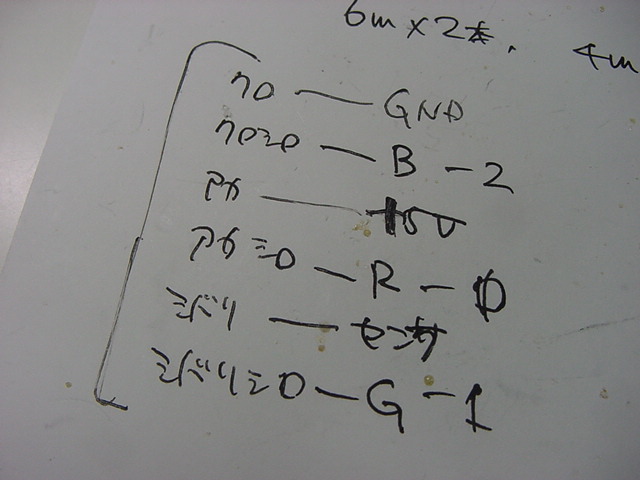 6m×2本、 4m
クロ — GND
クロシロ — B - 2
アカ — +5V
アカシロ — R - 0
ミドリ — センサ
ミドリシロ — G - 1